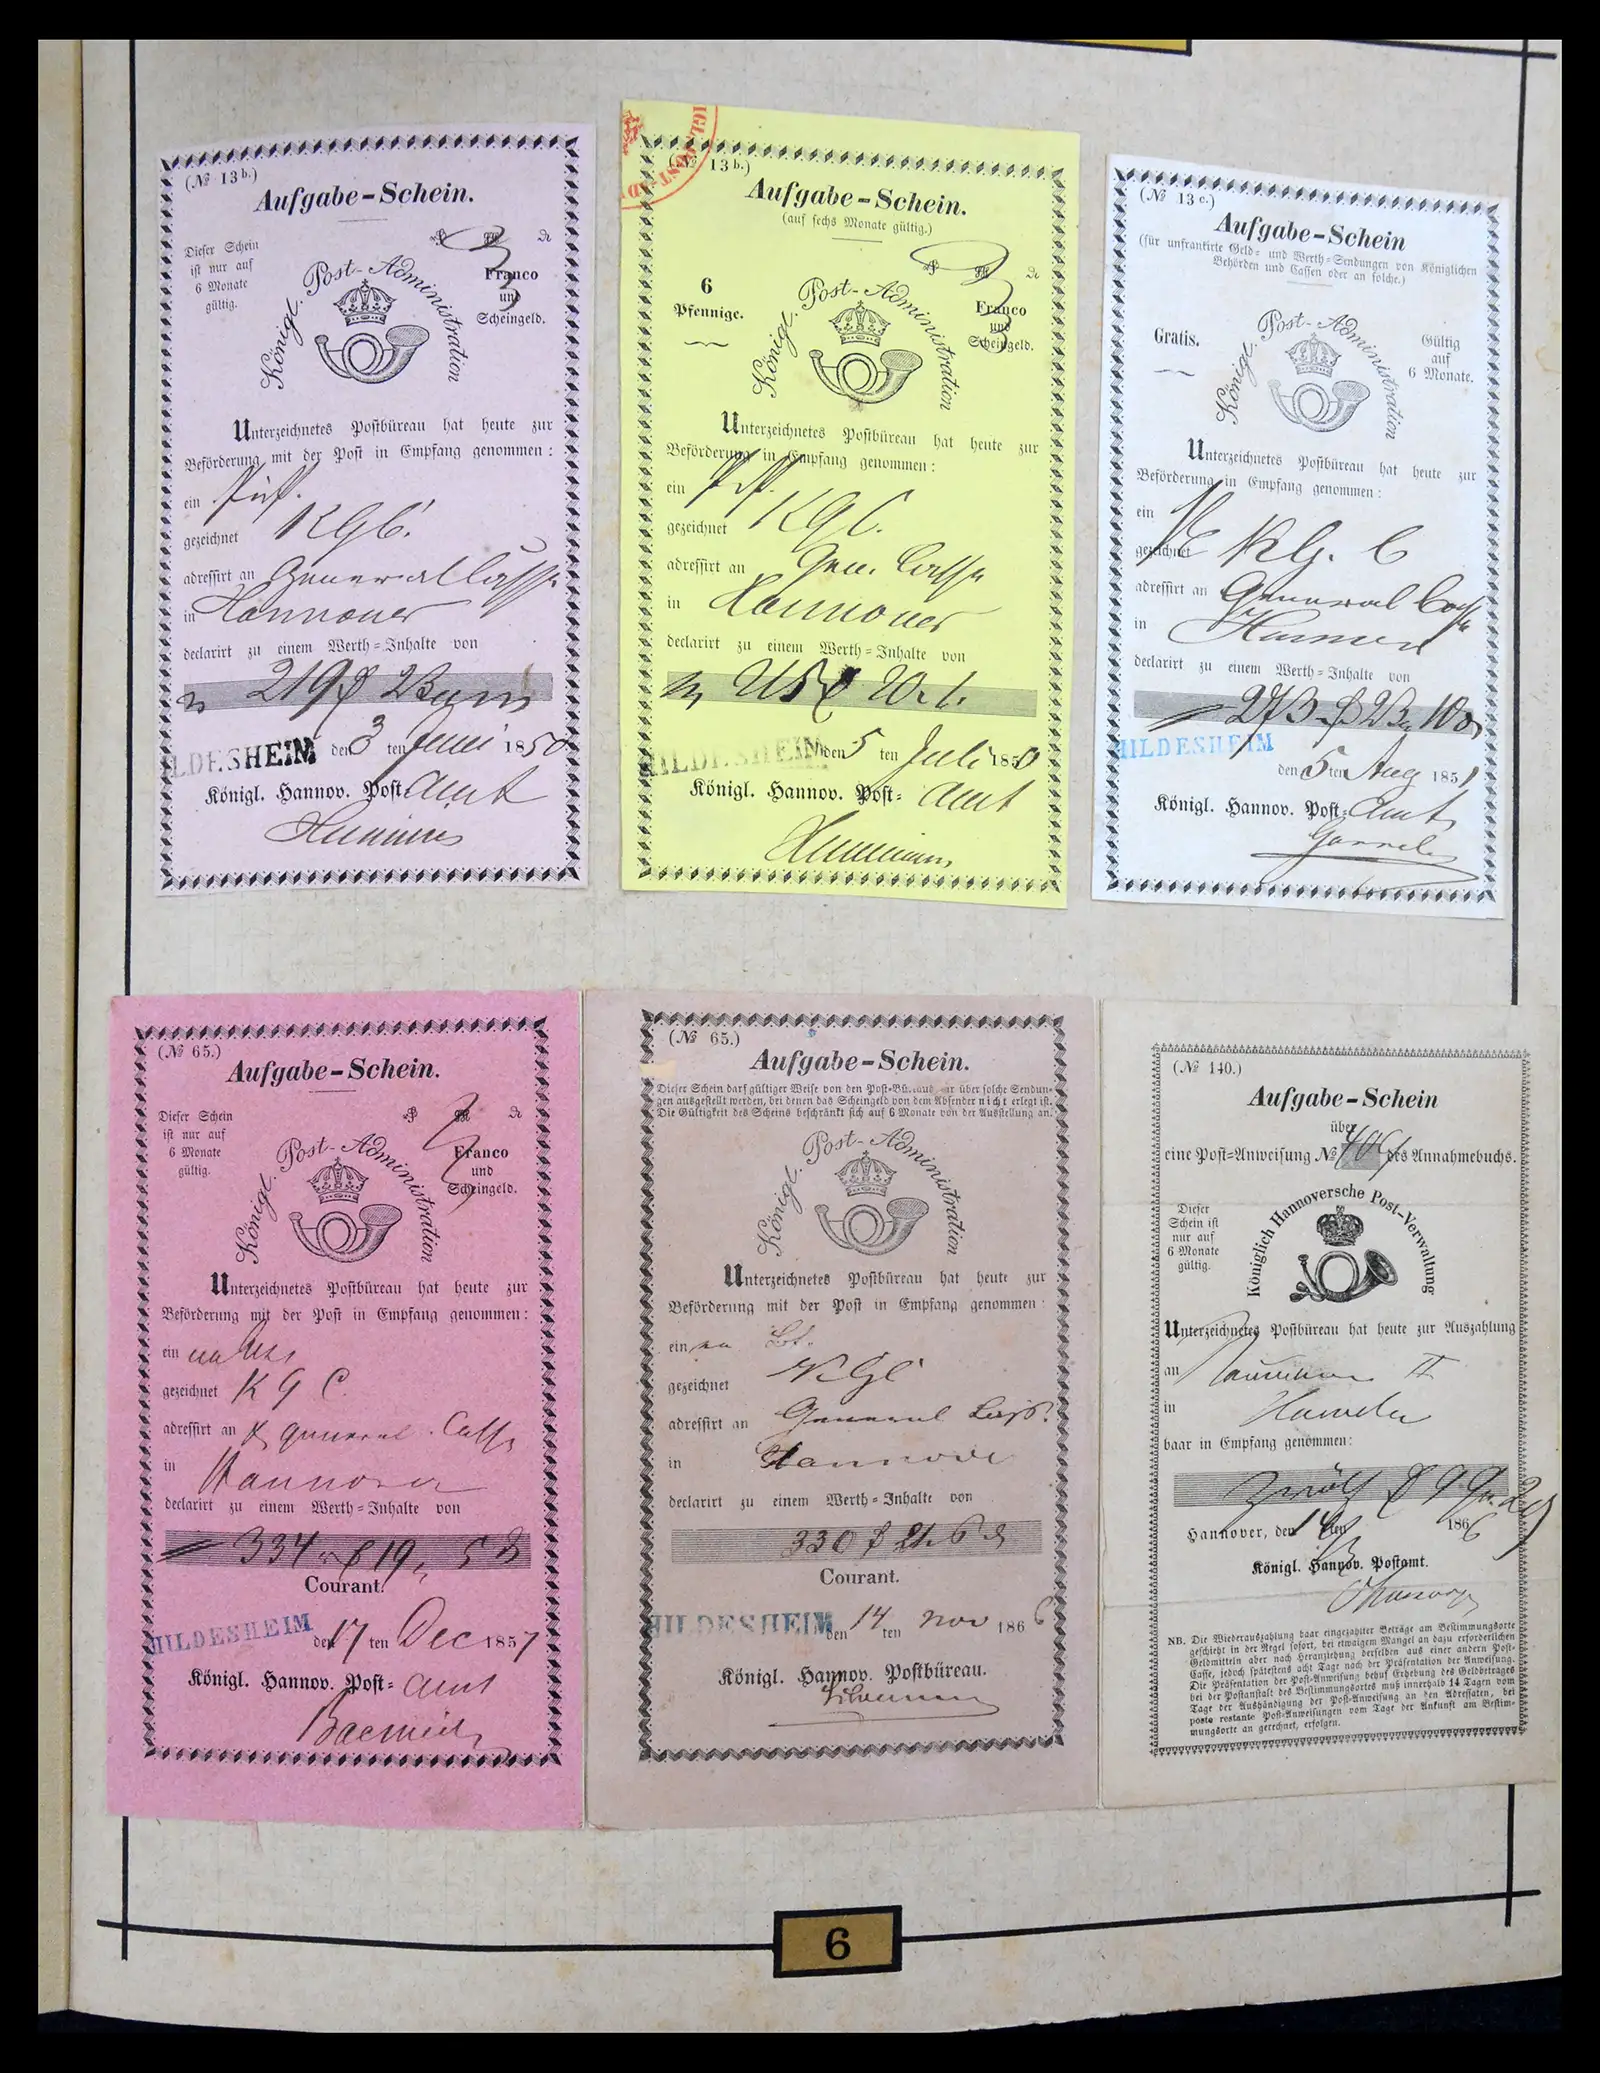 (№ 13b.)
Aufgabe-Schein.
Dieser Schein
ist nur auf
6 Monate
gültig.
3
Franco
und
Scheingeld.
Königl. Post-Administration
Unterzeichnetes Postbüreau hat heute zur
Beförderung mit der Post in Empfang genommen:
ein
gezeichnet KGC.
adressirt an General Casse
in Hannover
declarirt zu einem Werth-Inhalte von
219
HILDESHEIM den 3 ten Juni 1850
Königl. Hannov. Post-Amt
(№ 13b.)
Aufgabe-Schein.
(auf sechs Monate gültig.)
6
Pfennige.
3
Franco
und
Scheingeld.
Königl. Post-Administration
Unterzeichnetes Postbüreau hat heute zur
Beförderung in Empfang genommen:
ein
gezeichnet KGC.
adressirt an Gen. Casse
in Hannover
declarirt zu einem Werth-Inhalte von
HILDESHEIM den 5 ten Juli 1850
Königl. Hannov. Post-Amt
(№ 13c.)
Aufgabe-Schein
(für unfrankirte Geld- und Werth-Sendungen von Königlichen
Behörden und Cassen oder an solche.)
Gratis.
Gültig
auf
6 Monate.
Königl. Post-Administration
Unterzeichnetes Postbüreau hat heute zur
Beförderung in Empfang genommen:
ein
gezeichnet Klg. C
adressirt an General Casse
in Hannover
declarirt zu einem Werth-Inhalte von
273
HILDESHEIM
den 5 ten Aug 1851
Königl. Hannov. Post-Amt
(№ 65.)
Aufgabe-Schein.
Dieser Schein
ist nur auf
6 Monate
gültig.
Franco
und
Scheingeld.
Königl. Post-Administration
Unterzeichnetes Postbüreau hat heute zur
Beförderung mit der Post in Empfang genommen:
ein
gezeichnet KGC.
adressirt an General Casse
in Hannover
declarirt zu einem Werth-Inhalte von
334 19 5
Courant.
HILDESHEIM den 17 ten Dec 1857
Königl. Hannov. Post-Amt
(№ 65.)
Aufgabe-Schein.
Dieser Schein darf gültiger Weise von den Post-Bü nur über solche Sendun-
gen ausgestellt werden, bei denen das Scheingeld von dem Absender nicht erlegt ist.
Die Gültigkeit des Scheins beschränkt sich auf 6 Monate von der Ausstellung an.
Königl. Post-Administration
Unterzeichnetes Postbüreau hat heute zur
Beförderung mit der Post in Empfang genommen:
ein
gezeichnet KGC
adressirt an General Casse
in Hannover
declarirt zu einem Werth-Inhalte von
330 21 6
Courant.
HILDESHEIM den 14 ten Nov 1866
Königl. Hannov. Postbüreau.
(№ 140.)
Aufgabe-Schein
über
eine Post-Anweisung № des Annahmebuchs.
Dieser
Schein ist
nur auf
6 Monate
gültig.
Königlich Hannoversche Post-Verwaltung
Unterzeichnetes Postbüreau hat heute zur Auszahlung
an
in Hameln
baar in Empfang genommen:
Hannover, den 14 ten 1866
Königl. Hannov. Postamt.
NB. Die Wiederauszahlung baar eingezahlter Beträge am Bestimmungsorte
geschieht in der Regel sofort, bei etwaigem Mangel an dazu erforderlichen
Geldmitteln aber nach Heranziehung derselben aus einer andern Post-
Casse, jedoch spätestens acht Tage nach der Präsentation der Anweisung.
Die Präsentation der Post-Anweisung behuf Erhebung des Geldbetrages
bei der Postanstalt des Bestimmungsortes muß innerhalb 14 Tagen vom
Tage der Aushändigung der Post-Anweisung an den Adressaten, bei
poste restante Post-Anweisungen vom Tage der Ankunft am Bestim-
mungsorte an gerechnet, erfolgen.
6